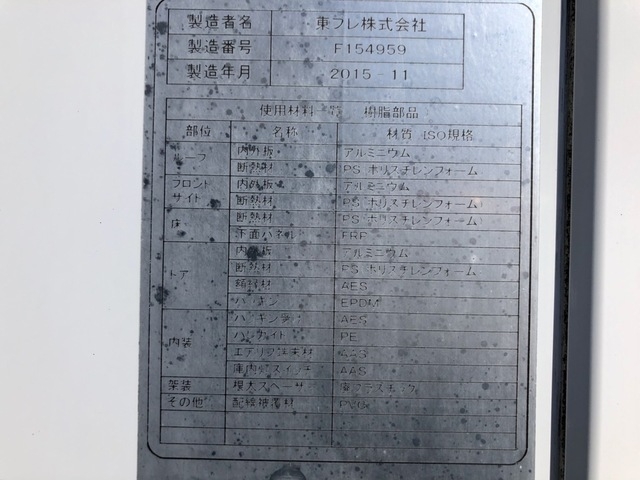 製造者名 東プレ株式会社
製造番号 F154959
製造年月 2015 - 11
使用材料 樹脂部品
部位 名称 材質 ISO規格
ルーフ 内外板 アルミニウム
断熱材 PS ポリスチレンフォーム
フロント サイド 内外板 アルミニウム
断熱材 PS ポリスチレンフォーム
床 断熱材 PS ポリスチレンフォーム
下面パネル FRP
ドア 内外板 アルミニウム
断熱材 PS ポリスチレンフォーム
縁材 AES
パッキン EPDM
内装 AES
PE
AAS
庫内灯スイッチ AAS
架装 スペーサ 廃プラスチック
その他 配線被覆材 PVC